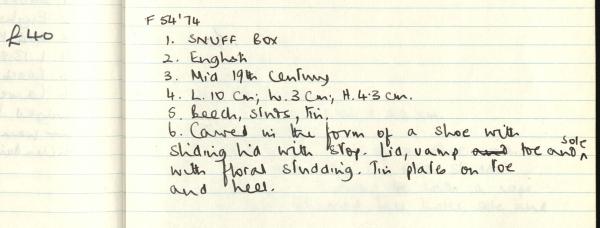 £40
F 54'74
1. SNUFF BOX
2. English
3. Mid 19th Century
4. L. 10 cm; W. 3 cm; H. 4.3 cm.
5. Beech, studs, tin.
6. Carved in the form of a shoe with
sliding lid with stop. Lid, vamp and toe and sole
with floral studding. Tin plates on toe
and heel.